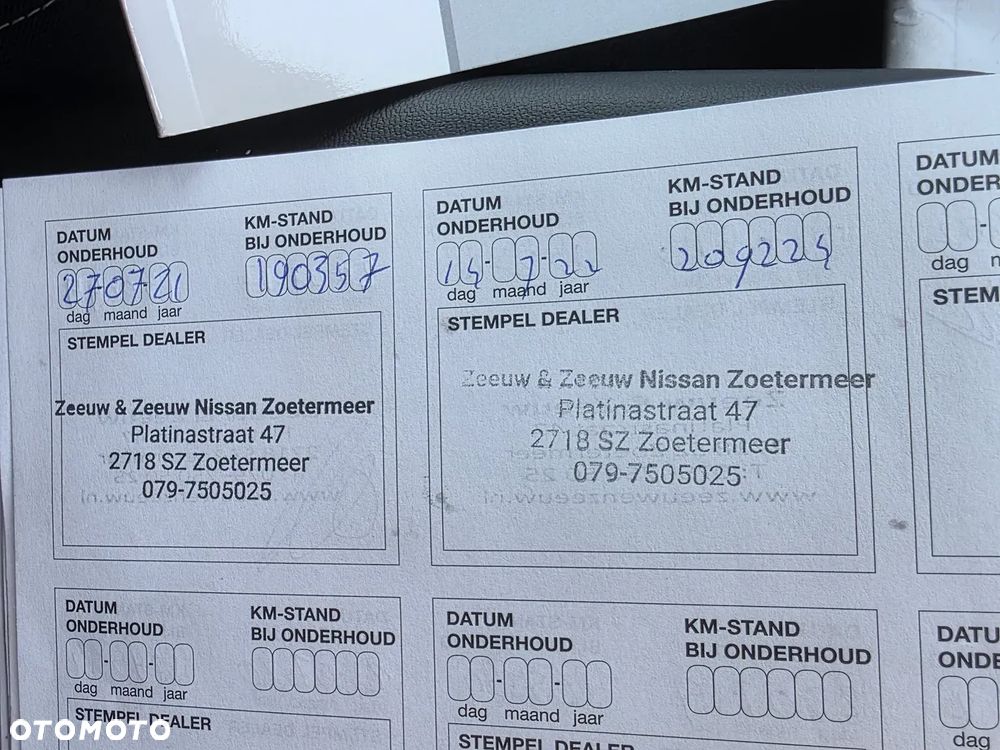 DATUM
ONDERHOUD
KM-STAND
BIJ ONDERHOUD
27-07-21
190357
dag maand jaar
STEMPEL DEALER
Zeeuw & Zeeuw Nissan Zoetermeer
Platinastraat 47
2718 SZ Zoetermeer
079-7505025
DATUM
ONDERHOUD
KM-STAND
BIJ ONDERHOUD
14-7-22
209224
dag maand jaar
STEMPEL DEALER
Zeeuw & Zeeuw Nissan Zoetermeer
Platinastraat 47
2718 SZ Zoetermeer
079-7505025
DATUM
ONDER
dag
STEM
DATUM
ONDERHOUD
KM-STAND
BIJ ONDERHOUD
dag maand jaar
STEMPEL DEALER
DATUM
ONDERHOUD
KM-STAND
BIJ ONDERHOUD
dag maand jaar
STEMPEL DEALER
DATU
ONDE
dag
OTOMOTO